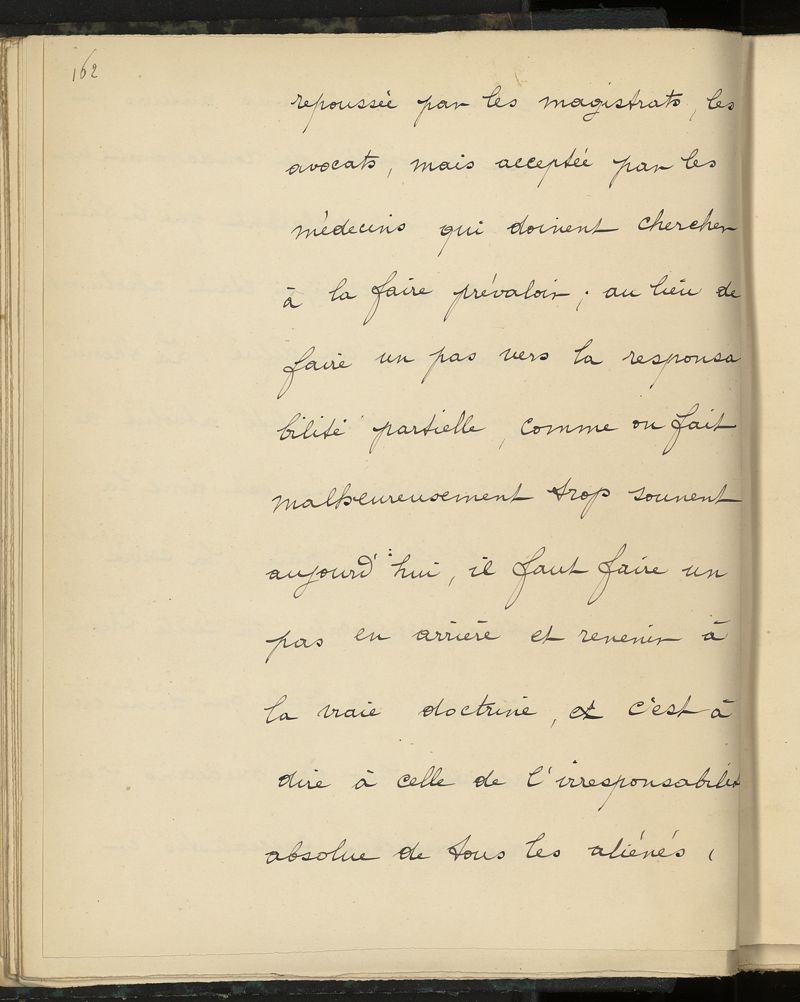 162
repoussée par les magistrats, les
avocats, mais acceptée par les
médecins qui doivent chercher
à la faire prévaloir ; au lieu de
faire un pas vers la responsa
bilité partielle, comme on fait
malheureusement trop souvent
aujourd'hui, il faut faire un
pas en arrière et revenir à
la vraie doctrine, et c'est à
dire à celle de l'irresponsabilité
absolue de tous les aliénés,